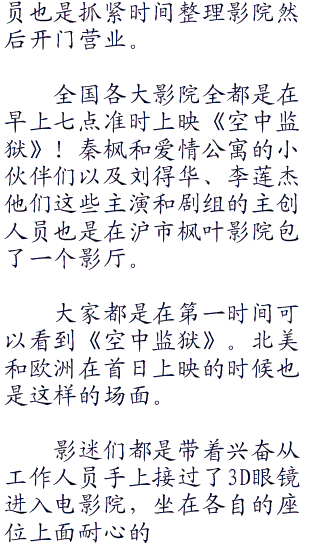 员也是抓紧时间整理影院然
后开门营业。
全国各大影院全都是在
早上七点准时上映《空中监
狱》！秦枫和爱情公寓的小
伙伴们以及刘得华、李莲杰
他们这些主演和剧组的主创
人员也是在沪市枫叶影院包
了一个影厅。
大家都是在第一时间可
以看到《空中监狱》。北美
和欧洲在首日上映的时候也
是这样的场面。
影迷们都是带着兴奋从
工作人员手上接过了3D眼镜
进入电影院，坐在各自的座
位上面耐心的